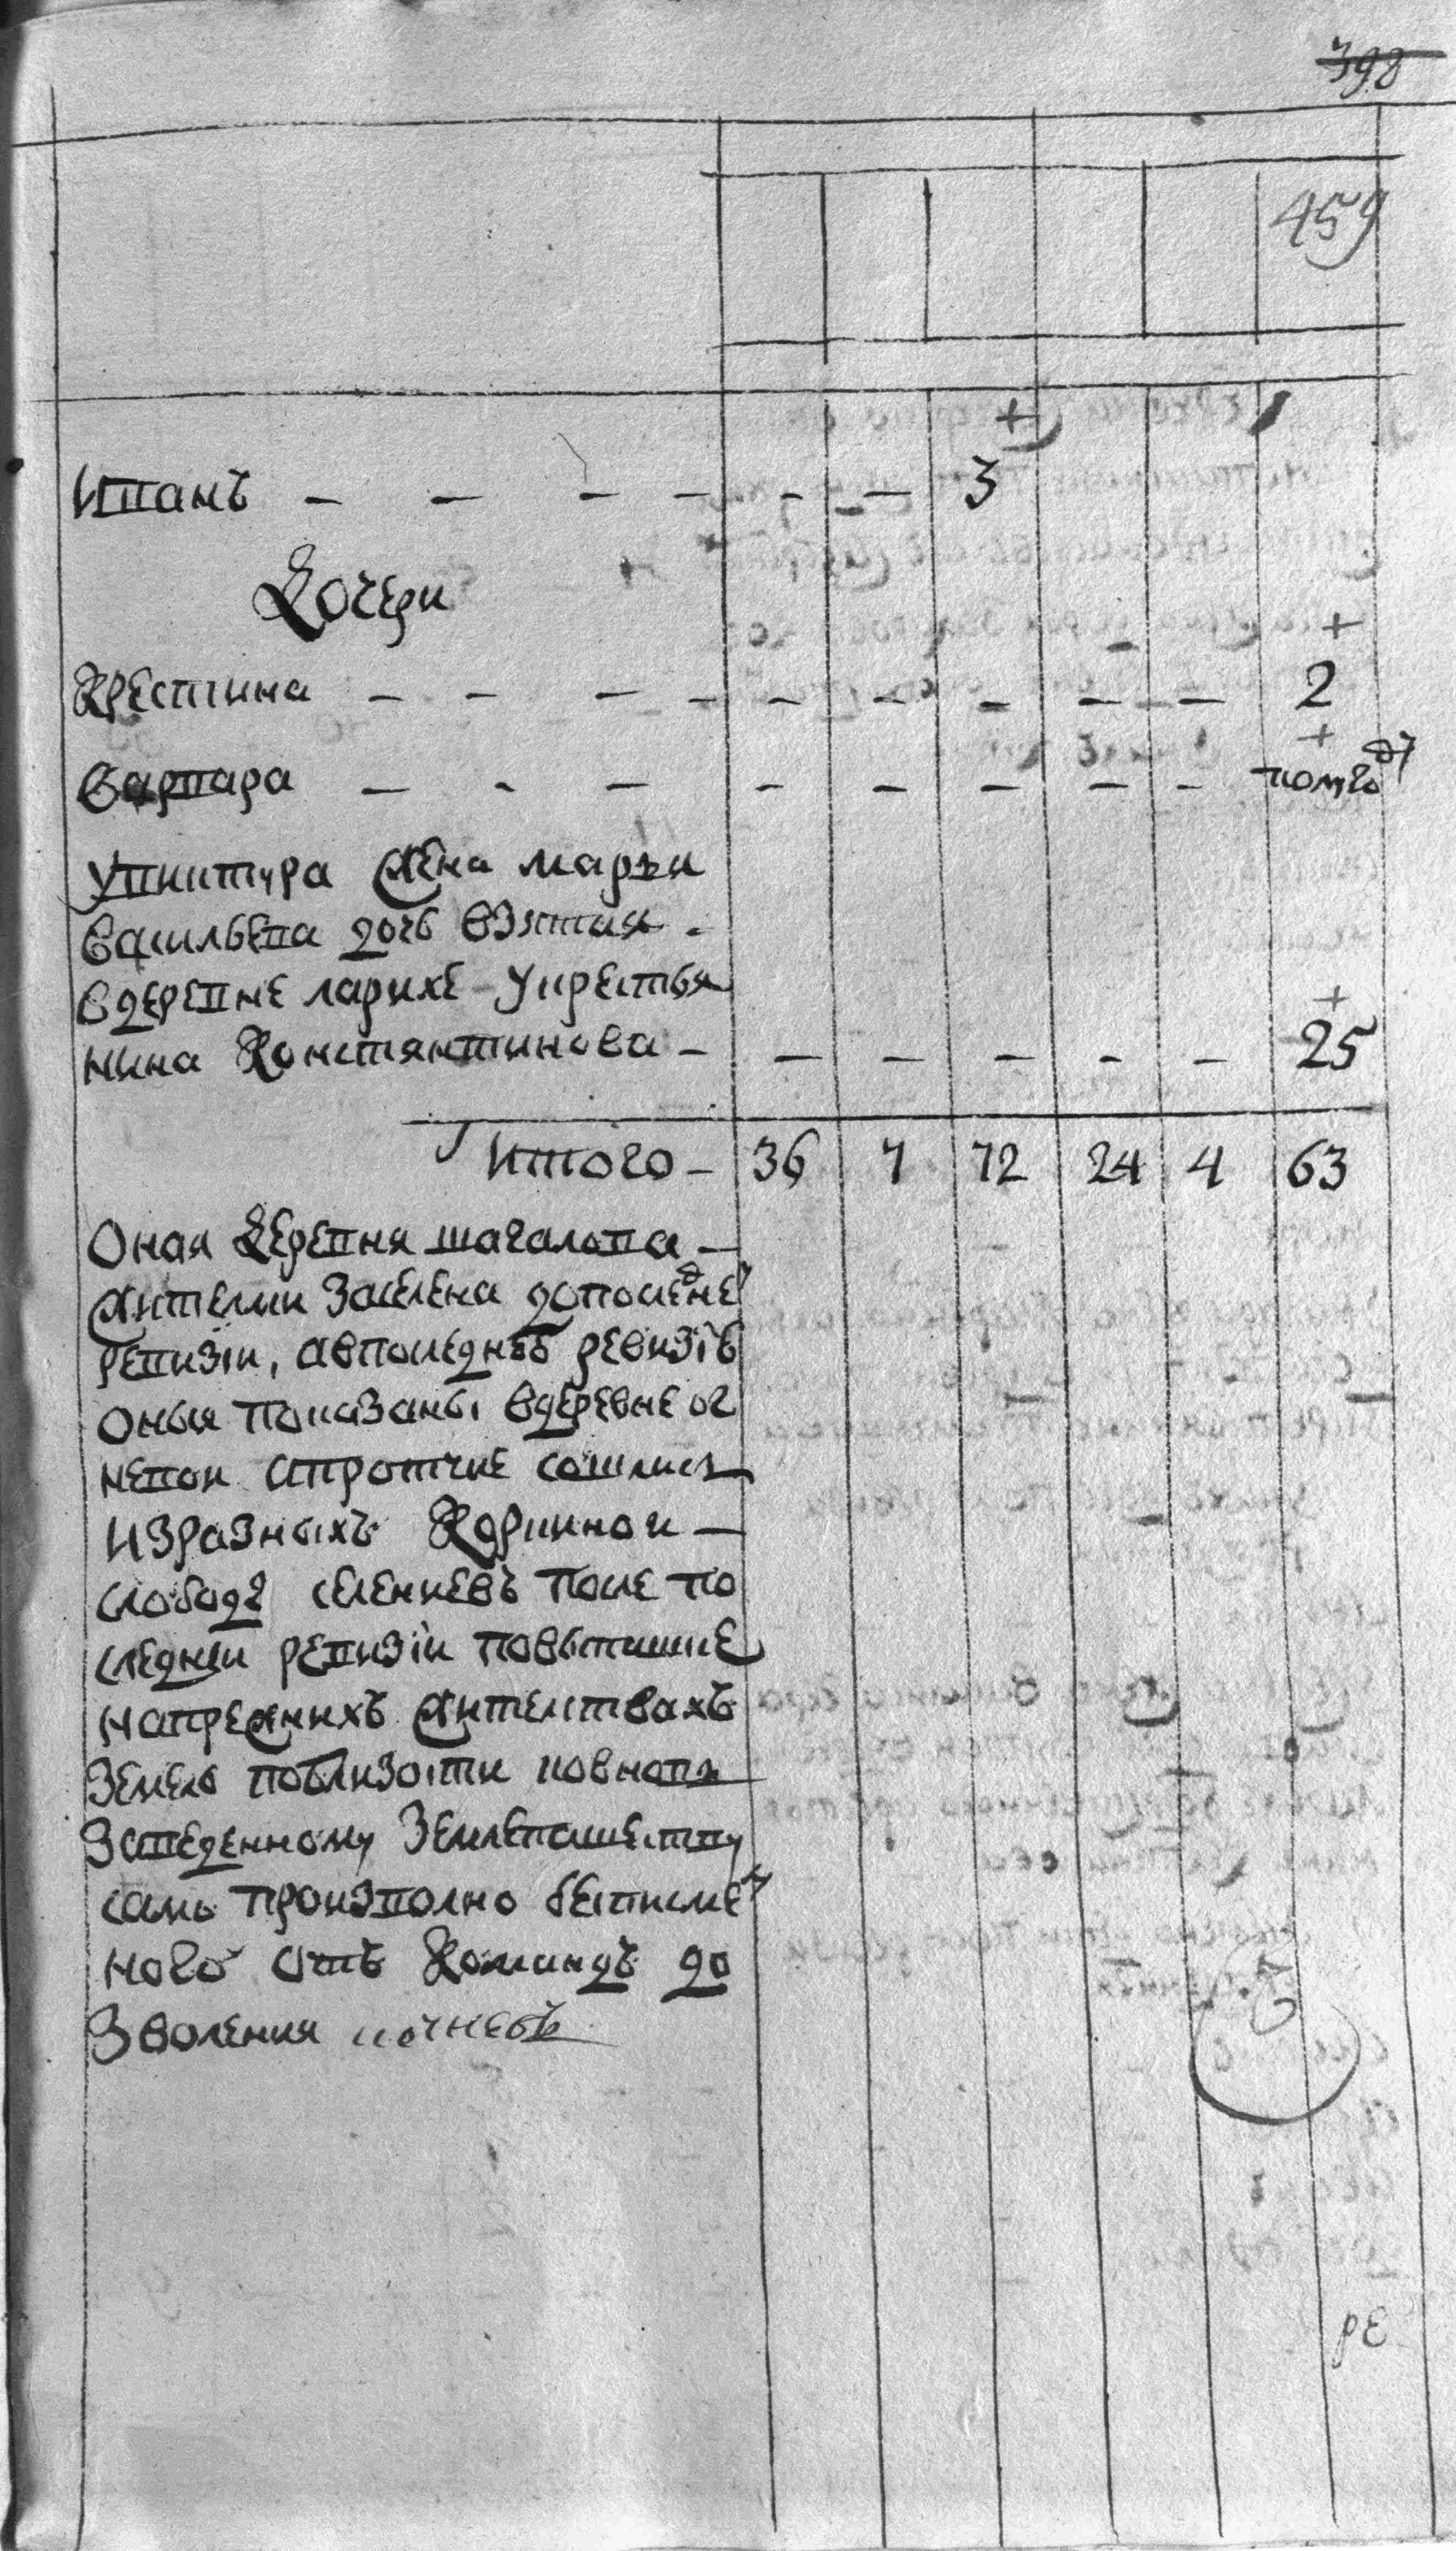 398
459
Иванъ — — — — — — 3
Дочери
Крестина — — — — — — — — — 2
Варвара — — — — — — — — полуго<sup>д</sup>
У Виктура жена Марья
Васильева дочь взятая
в деревне Ларихе у кресть я
нина Константинова — — — — — — 25
Итого — 36 7 72 24 4 63
Оная деревня Шагалова —
жителми заселена до после<sup>д</sup>не<sup>й</sup>
ревизiи, а в последнеѣ ревизiѣ
оныя показаны в деревне Ог
невой а протчие сошлись
из разныхъ Коркиной —
слободы селениевъ после по
следнiй ревизiи по бытишке
на прежнихъ жительствахъ
земель поблизости к овнова
заведенному землепашеству
само произволно бес писме<sup>н</sup>
ного отъ командъ до
зволения
РЕ